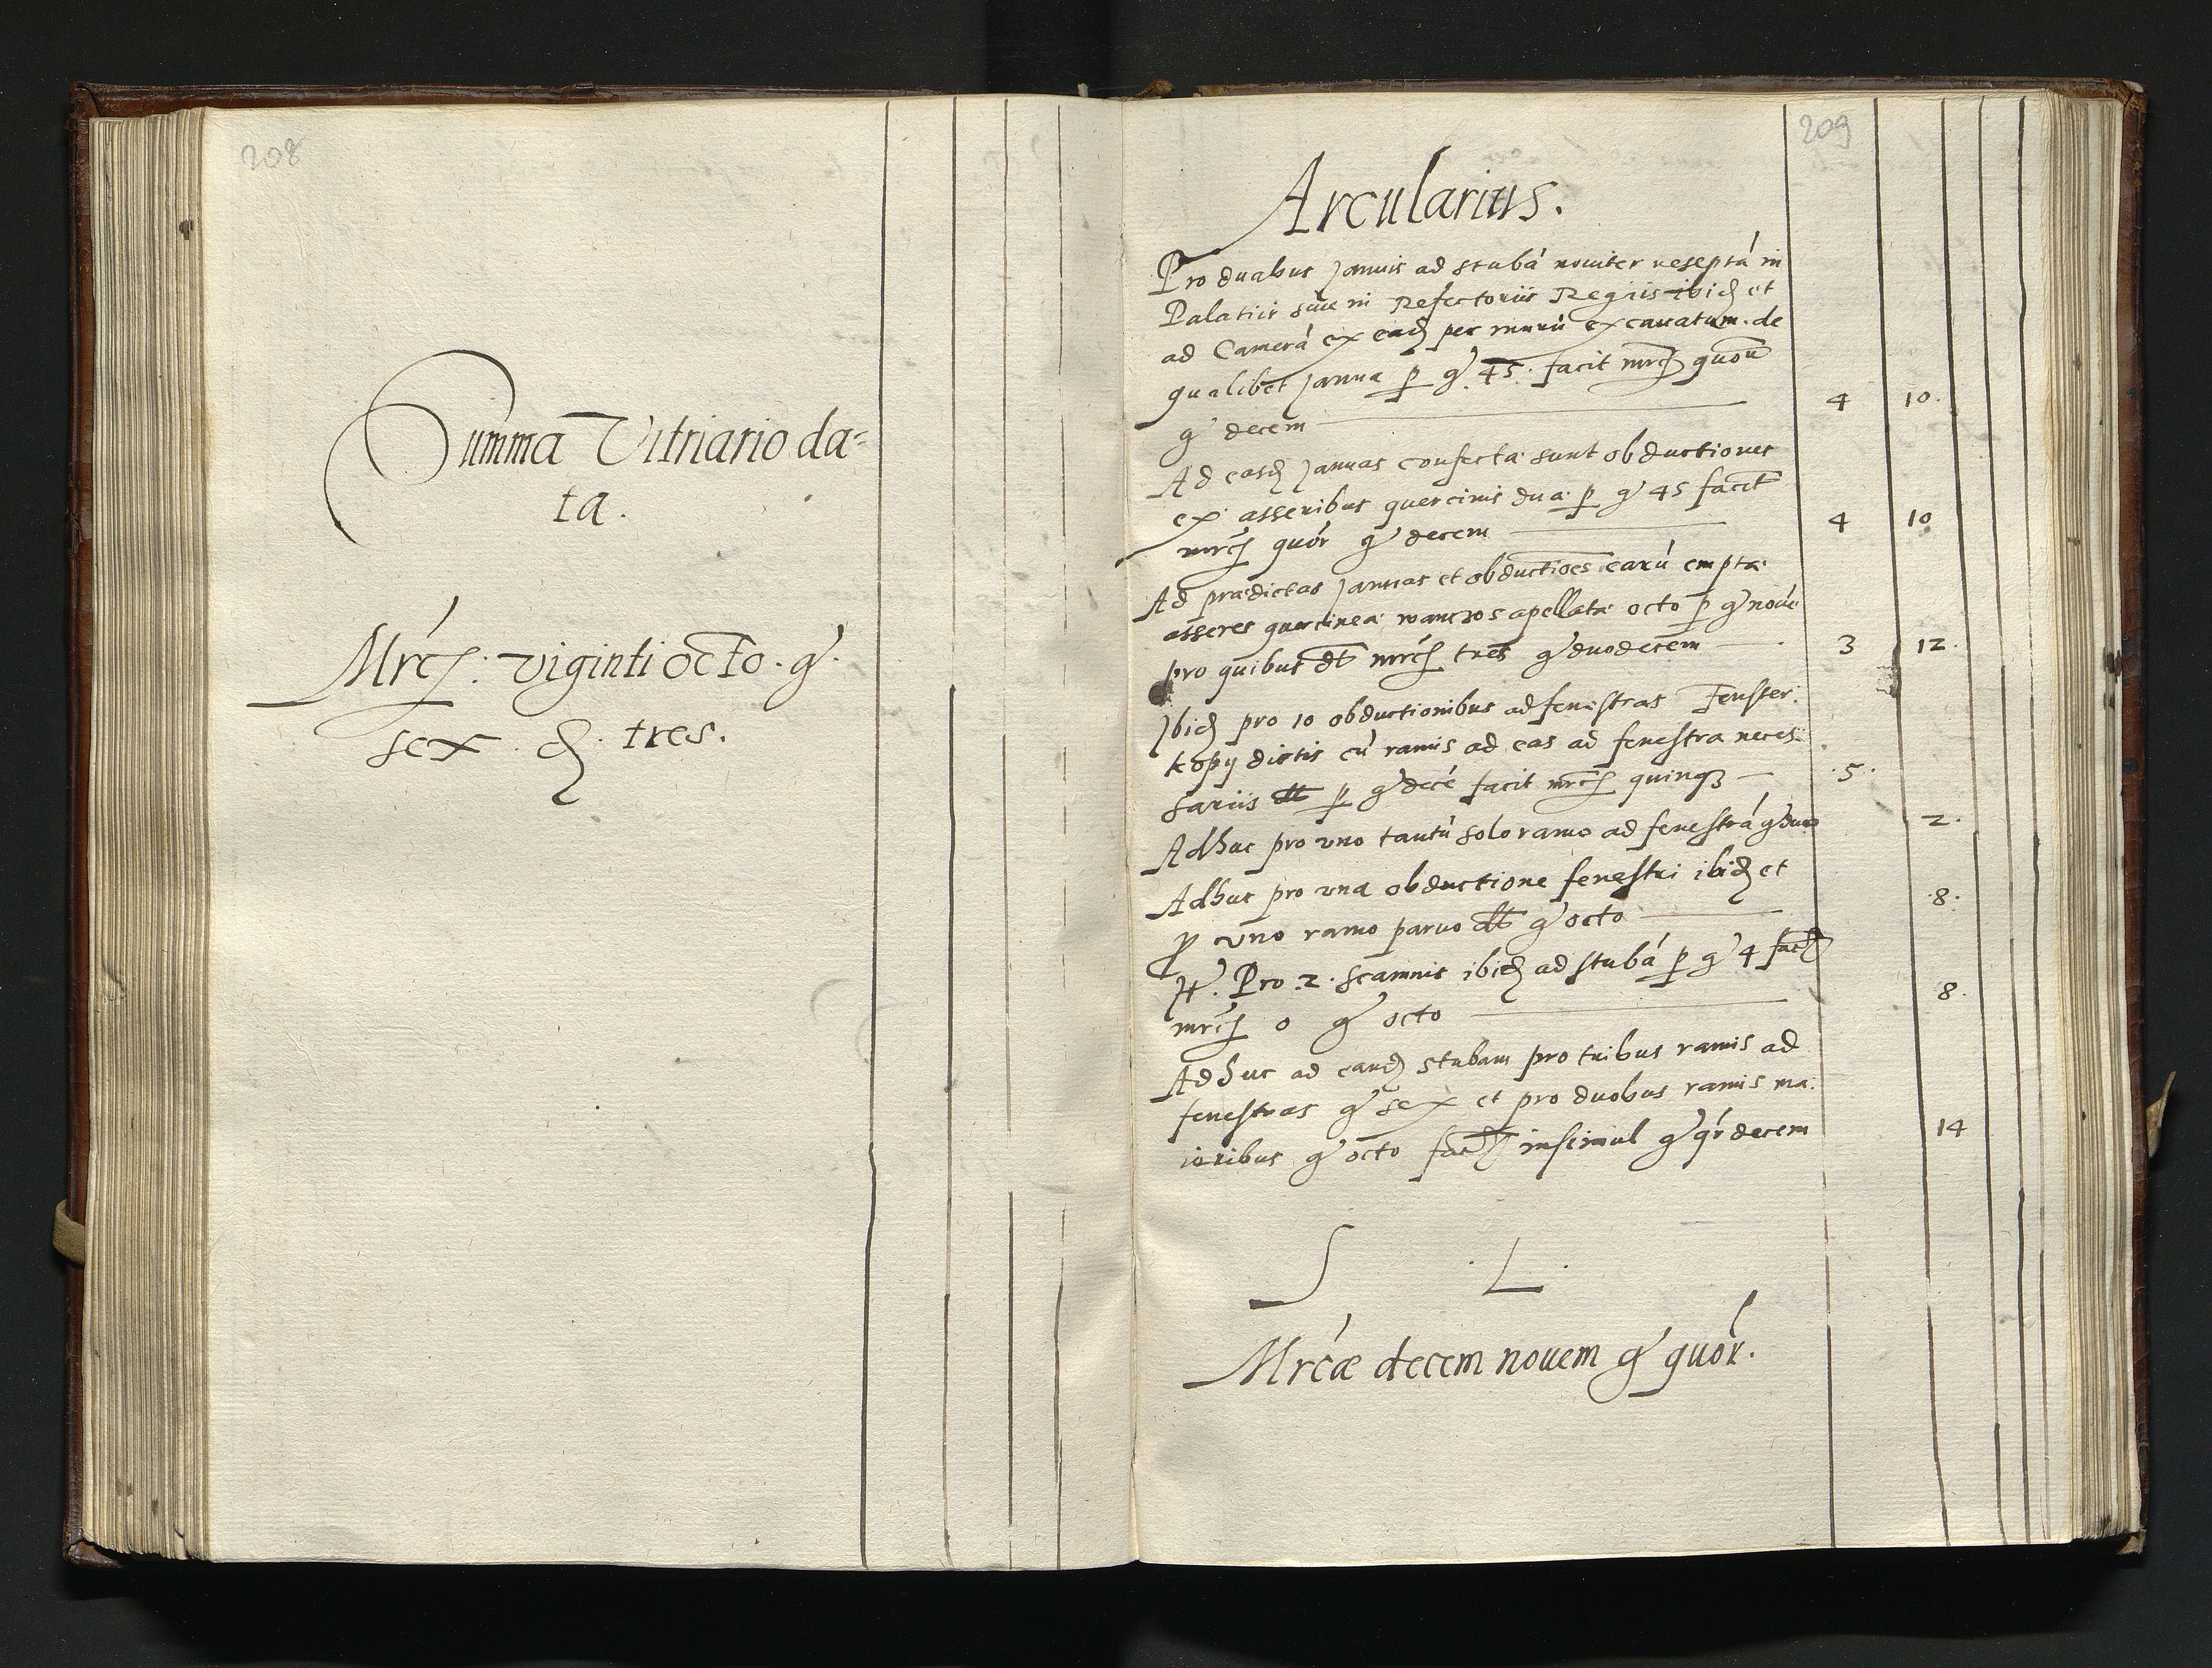 208
Summa Vitriario da=
ta.
Mrcȩ: viginti octo. gͬ.
sex. ₰. tres.
209
Arcularius.
Pro duabus Januis ad stubá noviter reseptá in
Palatiis sive in Refectoriis Regiis ibid et
ad Camerá ex ead per murú excavatum. de
qualibet Janua p gͬ 45. facit mrcȩ quor
gͬ decem 4 10.
Ad easd Januas confecta sunt obductiones
ex asseribus quercinis dua p gͬ 45 facit
mrcȩ quór gͬ decem 4 10
Ad prædictas Januas et obductioes earú empta
asseres quercinea wanczos apellata octo p gͬ noué
pro quibus dt mrcȩ tres gͬ duodecem 3 12.
Ibid pro 10 obductionibus ad fenestras Fenster
kopy dictis cú ramis ad eas ad fenestra neces
sariis p gͬ decé facit mrcȩ quinqȝ .5.
Adhuc pro uno tantú solo ramo ad fenestrá gͬ duo 2.
Adhuc pro una obductione fenestri ibid et
p uno ramo parvo dt gͬ octo .8.
It. Pro .2. scamnis ibid ad stubá p gͬ 4 facit
mrcȩ 0 gͬ octo 8.
Adhuc ad eand stubam pro tribus ramis ad
fenestras gͬ sex et pro duobus ramis ma
ioribus gͬ octo facit insimul gͬ qr decem 14
S . L .
Mrcæ decem novem gͬ quór.